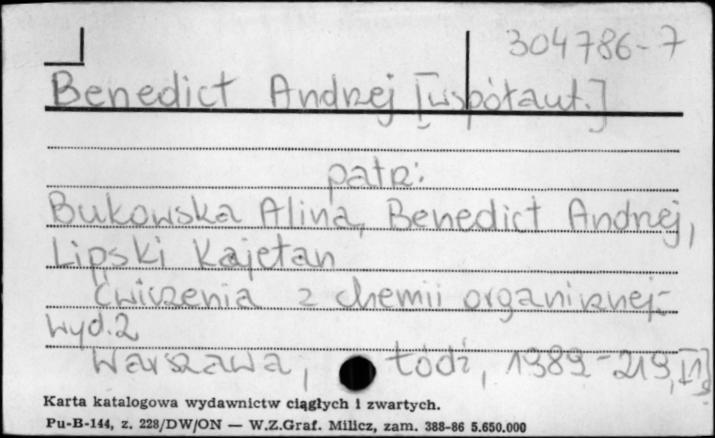 304786-7
Benedict Andrzej [współaut.]
patrz:
Bukowska Alina, Benedict Andrzej,
Lipski Kajetan
Ćwiczenia z chemii organicznej.-
Wyd.2
Warszawa, Łódź, 1989 - 219,[1]
Karta katalogowa wydawnictw ciągłych i zwartych.
Pu-B-144, z. 228/DW/ON — W.Z.Graf. Milicz, zam. 388-86 5.650.000